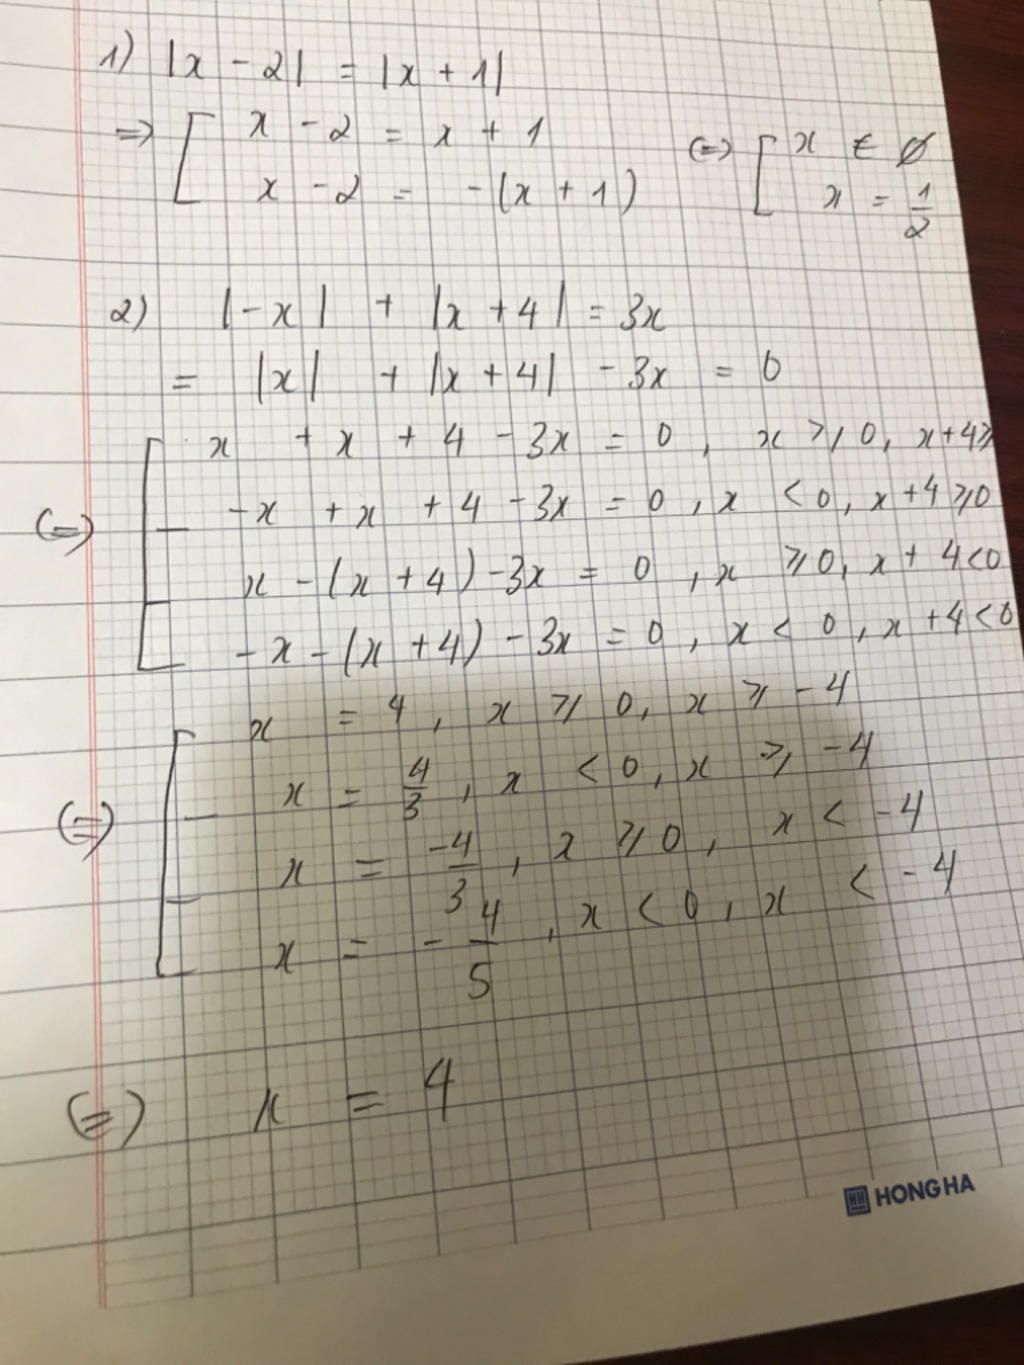 1) |x - 2| = |x + 1|
=> [ x - 2 = x + 1 (=) [ x ∈ ∅
x - 2 = -(x + 1) x = 1/2
2) |-x| + |x + 4| = 3x
= |x| + |x + 4| - 3x = 0
x + x + 4 - 3x = 0, x ⩾ 0, x + 4 ⩾
(=) -x + x + 4 - 3x = 0, x < 0, x + 4 ⩾ 0
x - (x + 4) - 3x = 0, x ⩾ 0, x + 4 < 0
-x - (x + 4) - 3x = 0, x < 0, x + 4 < 0
x = 4, x ⩾ 0, x ⩾ -4
(=) x = 4/3, x < 0, x ⩾ -4
x = -4/3, x ⩾ 0, x < -4
x = -4/5, x < 0, x < -4
(=) x = 4
HH HONG HA